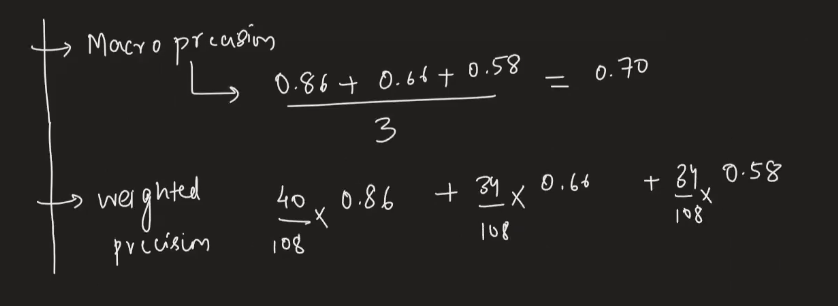 → Macro precision
↳ (0.86 + 0.66 + 0.58) / 3 = 0.70
→ weighted precision 40/108 × 0.86 + 34/108 × 0.66 + 34/108 × 0.58